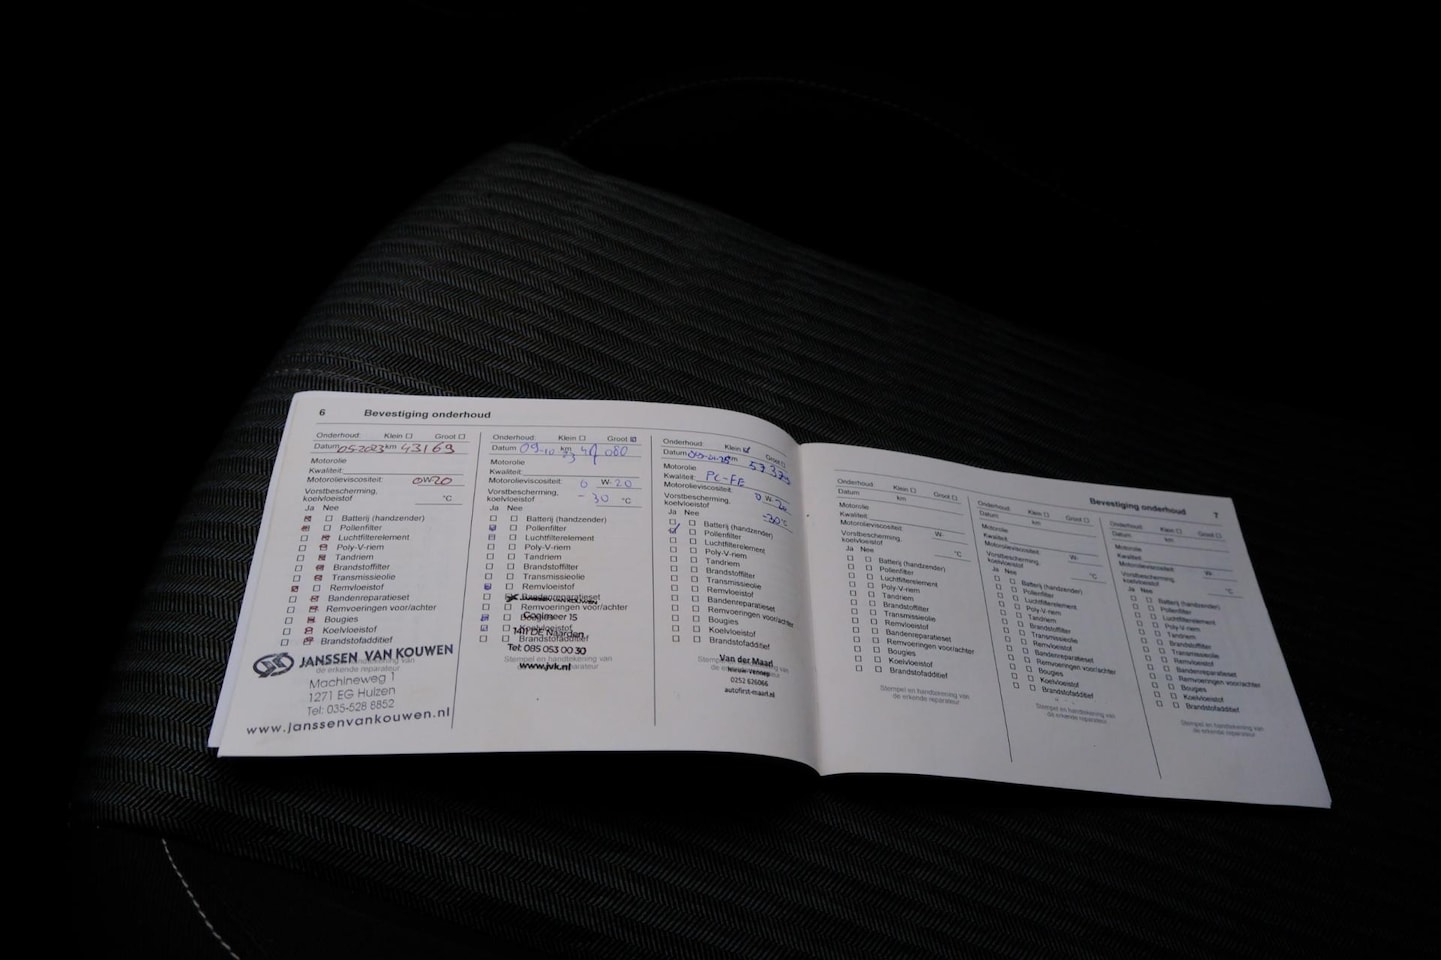 6 Bevestiging onderhoud
Onderhoud: Klein Groot
Datum 05-2023 km 43169
Motorolie
Kwaliteit:
Motorolieviscositeit: 0 W- 20
Vorstbescherming,
koelvloeistof °C
Ja Nee
Batterij (handzender)
Pollenfilter
Luchtfilterelement
Poly-V-riem
Tandriem
Brandstoffilter
Transmissieolie
Remvloeistof
Bandenreparatieset
Remvoeringen voor/achter
Bougies
Koelvloeistof
Brandstofadditief
JANSSEN VAN KOUWEN
de erkende reparateur
Machineweg 1
1271 EG Huizen
Tel: 035-528 8852
www.janssenvankouwen.nl
Onderhoud: Klein Groot
Datum 09-10 km 080
Motorolie
Kwaliteit:
Motorolieviscositeit: 0 W- 20
Vorstbescherming,
koelvloeistof -30 °C
Ja Nee
Batterij (handzender)
Pollenfilter
Luchtfilterelement
Poly-V-riem
Tandriem
Brandstoffilter
Transmissieolie
Remvloeistof
Bandenreparatieset
Remvoeringen voor/achter
Bougies
Koelvloeistof
Brandstofadditief
15
1411 DE Naarden
Tel: 085 053 00 30
Stempel en handtekening van
www.jvk.nl
Onderhoud: Klein Groot
Datum km
Motorolie
Kwaliteit: PC-FE
Motorolieviscositeit: 0 W- 20
Vorstbescherming,
koelvloeistof -30 °C
Ja Nee
Batterij (handzender)
Pollenfilter
Luchtfilterelement
Poly-V-riem
Tandriem
Brandstoffilter
Transmissieolie
Remvloeistof
Bandenreparatieset
Remvoeringen voor/achter
Bougies
Koelvloeistof
Brandstofadditief
Van der Maad
Nieuw-Vennep
0252 626066
autofirst-maard.nl
Bevestiging onderhoud 7
Onderhoud: Klein Groot
Datum km
Motorolie
Kwaliteit:
Motorolieviscositeit: W-
Vorstbescherming,
koelvloeistof °C
Ja Nee
Batterij (handzender)
Pollenfilter
Luchtfilterelement
Poly-V-riem
Tandriem
Brandstoffilter
Transmissieolie
Remvloeistof
Bandenreparatieset
Remvoeringen voor/achter
Bougies
Koelvloeistof
Brandstofadditief
Stempel en handtekening van
de erkende reparateur
Onderhoud: Klein Groot
Datum km
Motorolie
Kwaliteit:
Motorolieviscositeit: W-
Vorstbescherming,
koelvloeistof °C
Ja Nee
Batterij (handzender)
Pollenfilter
Luchtfilterelement
Poly-V-riem
Tandriem
Brandstoffilter
Transmissieolie
Remvloeistof
Bandenreparatieset
Remvoeringen voor/achter
Bougies
Koelvloeistof
Brandstofadditief
Stempel en handtekening van
de erkende reparateur
Onderhoud: Klein Groot
Datum km
Motorolie
Kwaliteit:
Motorolieviscositeit: W-
Vorstbescherming,
koelvloeistof °C
Ja Nee
Batterij (handzender)
Pollenfilter
Luchtfilterelement
Poly-V-riem
Tandriem
Brandstoffilter
Transmissieolie
Remvloeistof
Bandenreparatieset
Remvoeringen voor/achter
Bougies
Koelvloeistof
Brandstofadditief
Stempel en handtekening van
de erkende reparateur